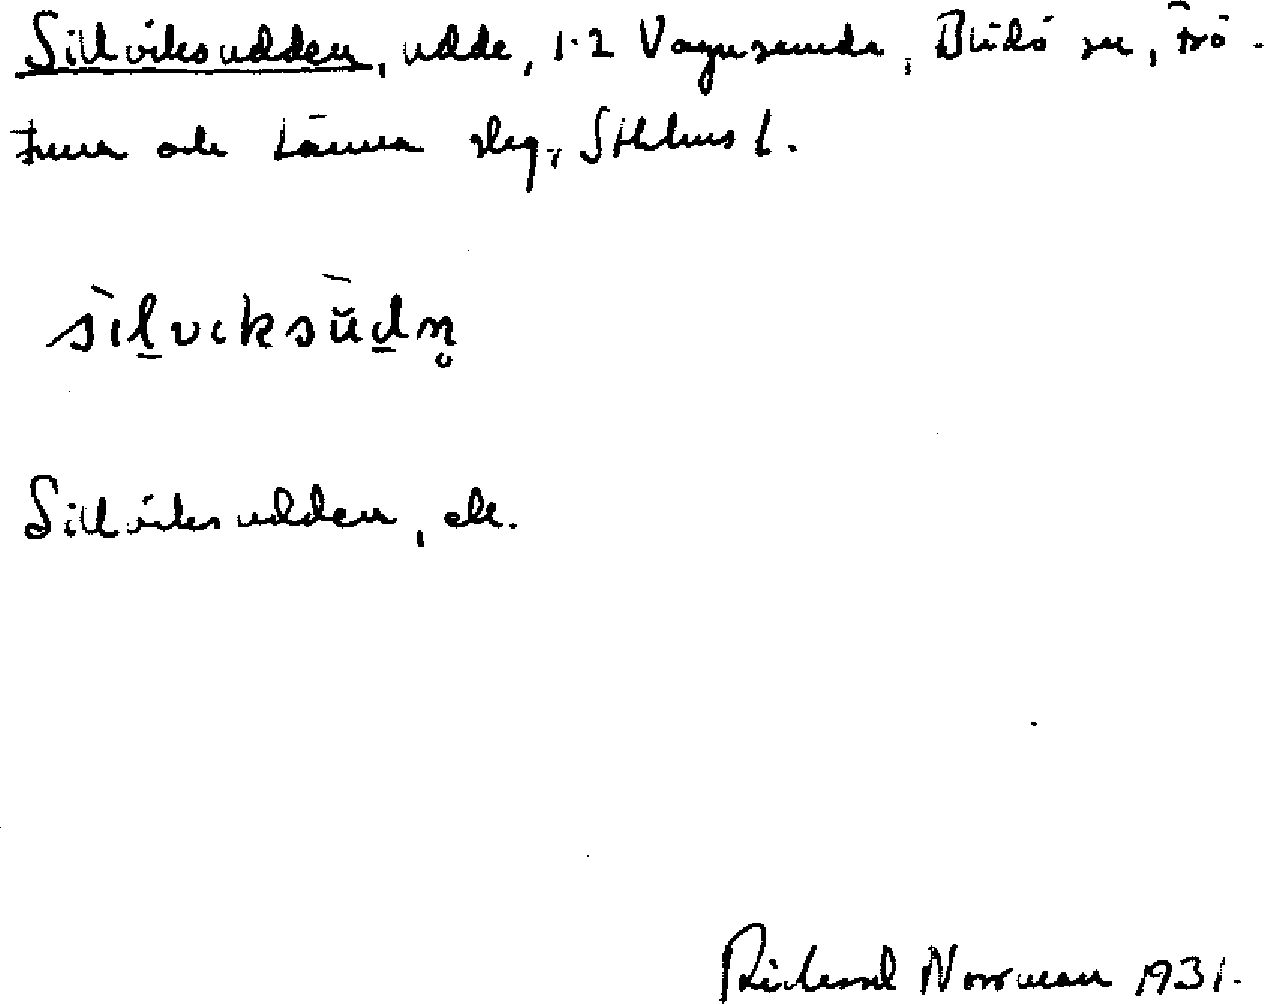 Sillviksudden, udde, 1-2 Vagnsunda, Blidö sn, Frö-
tuna och Länna slg, Sthlms l.
sìl̲vɩksùd̲n̥
Sillviksudden, ek.
Richard Norrman 1931.